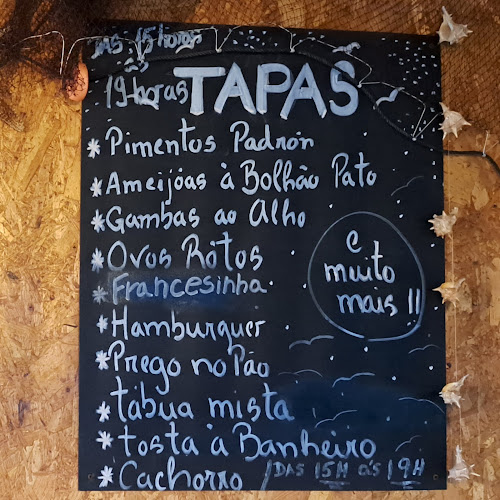 DAS 15 horas
às
19 horas TAPAS
* Pimentos Padrón
* Ameijóas à Bolhão Pato
* Gambas ao Alho
* Ovos Rotos
* Francesinha
* Hamburguer
* Prego no Pão
* tábua mista
* tosta à Banheiro
* Cachorro
e
muito
mais !!
DAS 15H ÀS 19H